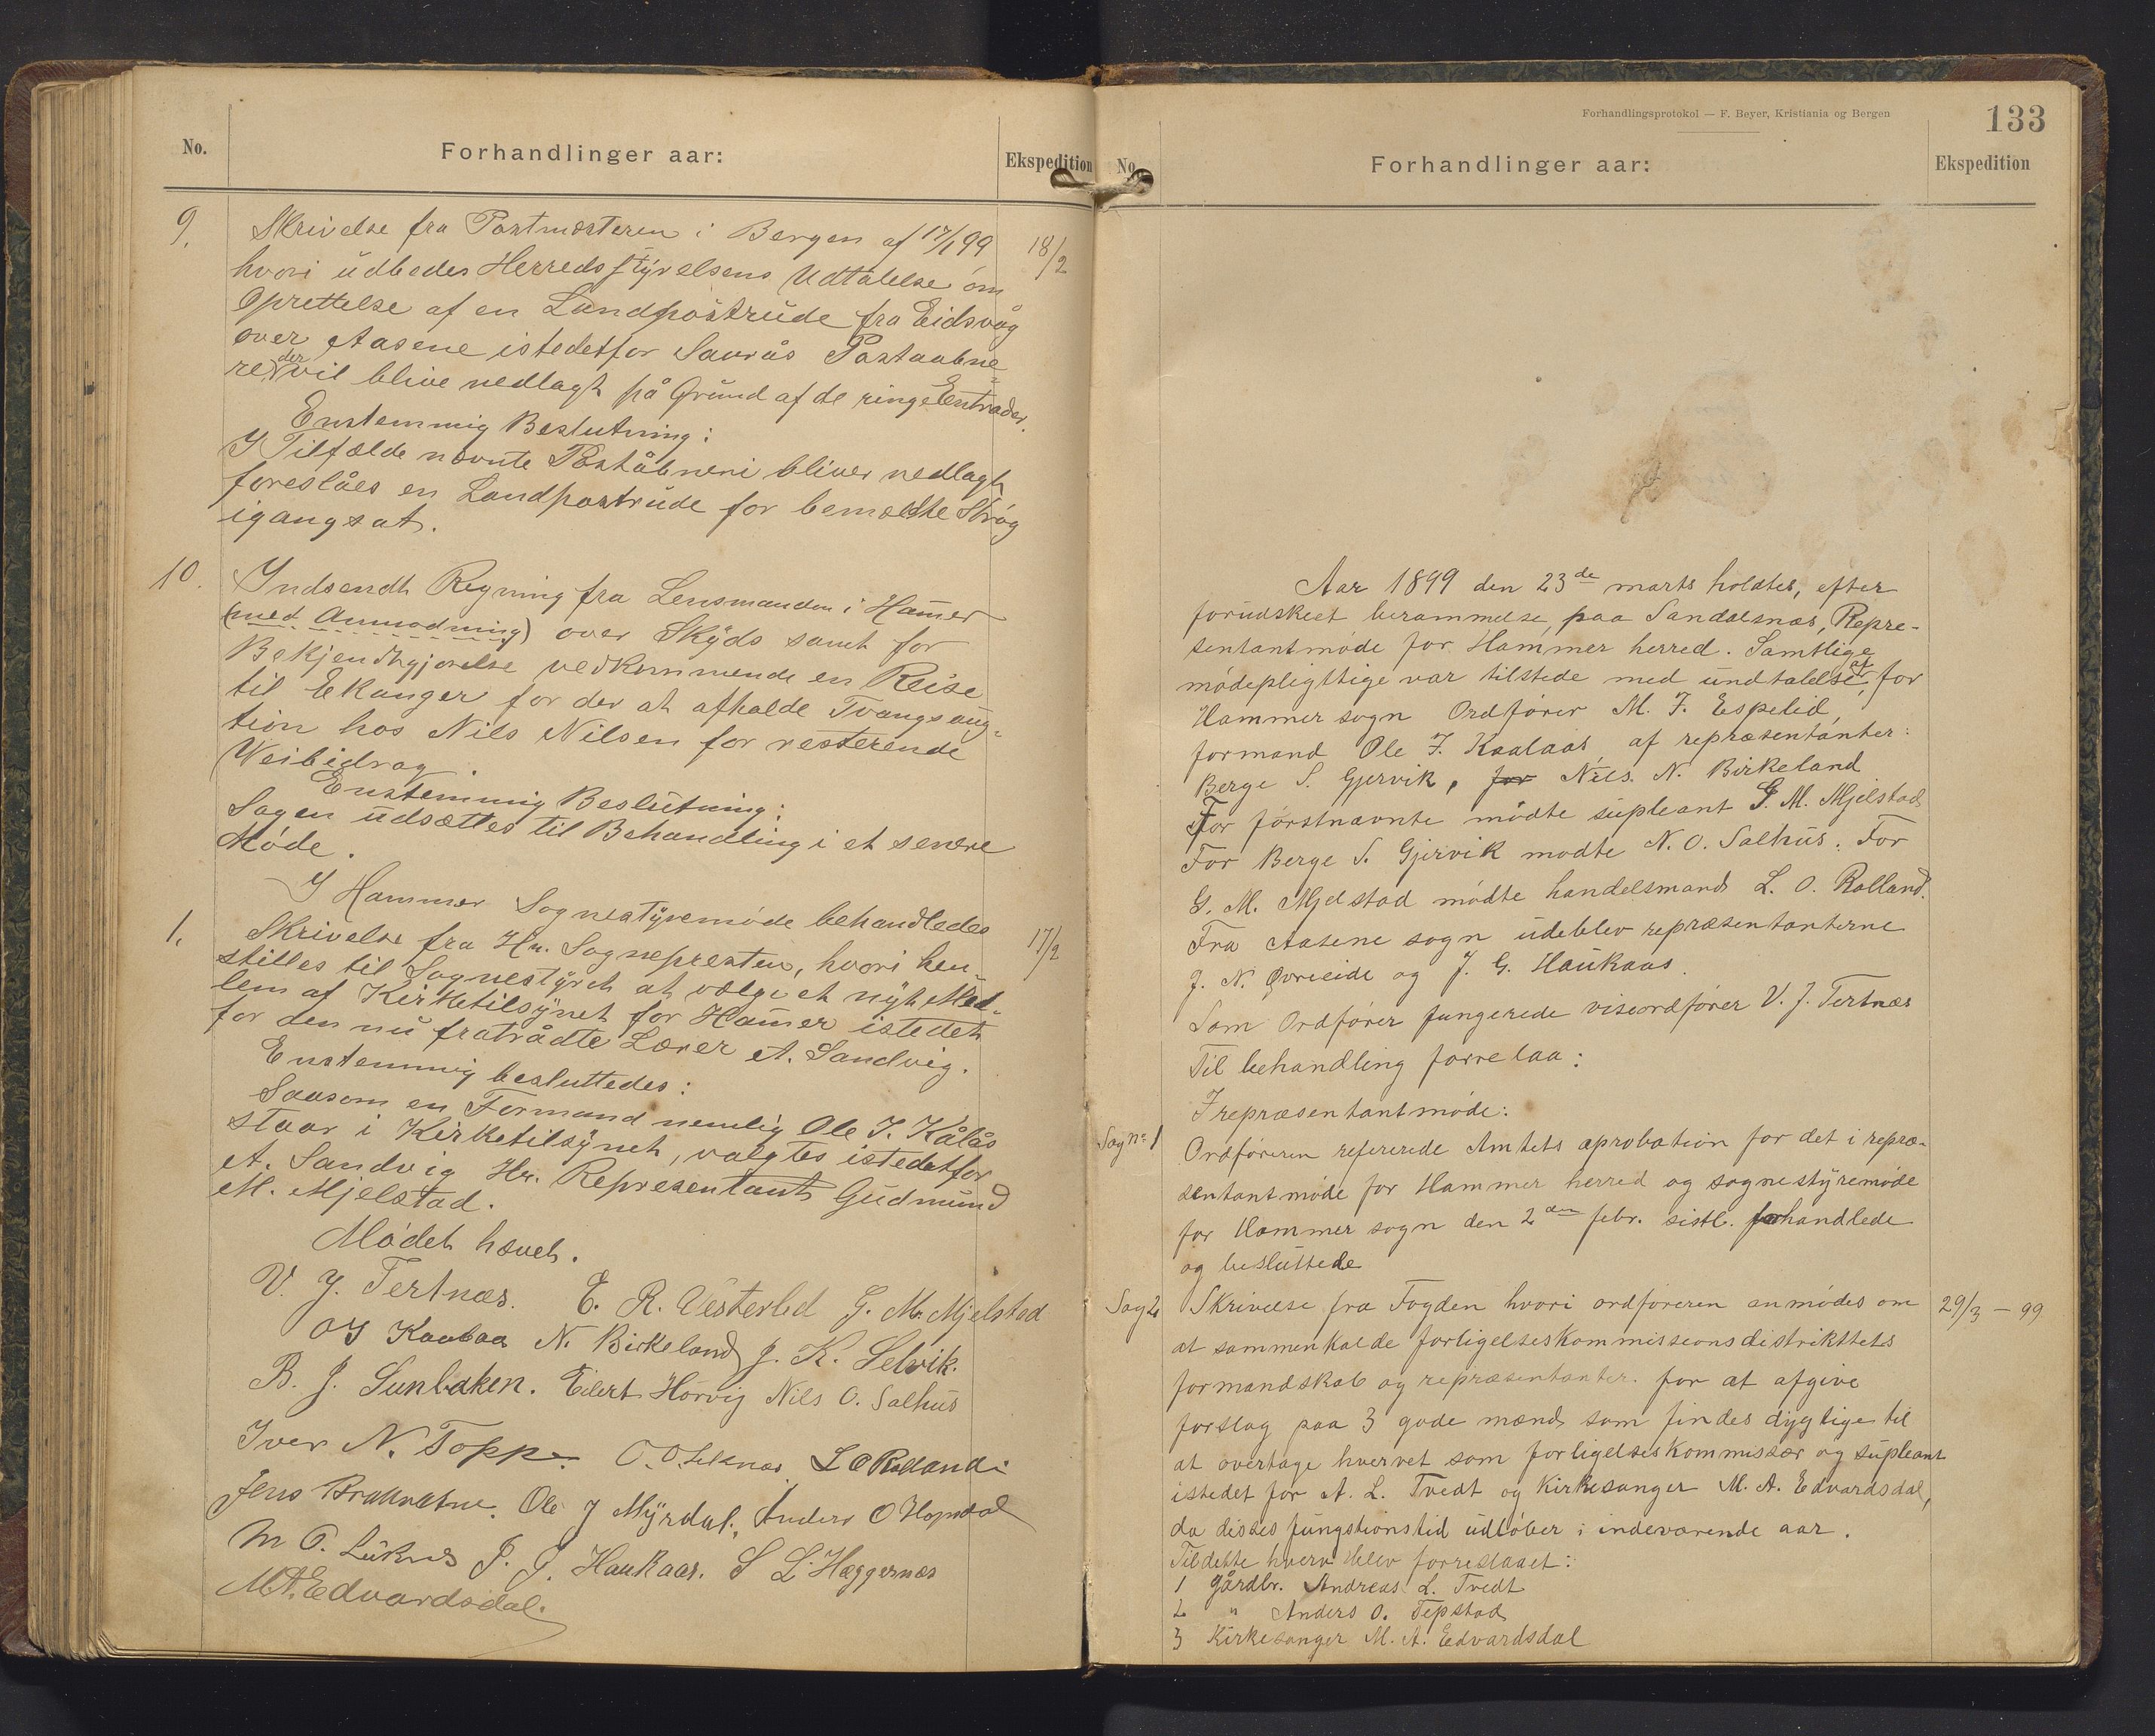 No.
Forhandlinger aar:
Ekspedition
9.
Skrivelse fra Postmesteren i Bergen af 17/1 99
18/2
hvori udbedes Herredsstyrelsens Udtalelse om
Oprettelse af en Landpostrude fra Eidsvåg
over Aasene istedetfor Saurås Postaabne=
ri der vil blive nedlagt på Grund af de ringe Entrader.
Enstemmig Beslutning:
I Tilfælde nævnte Poståbneri bliver nedlagt
foreslåes en Landpostrude for bemældte Strøg
igangsat.
10.
Indsendt Regning fra Lensmanden i Hamer
(med Anmodning) over Skyds samt for
Bekjendtgjørelse vedkommende en Reise
til Ekanger for der at afholde Tvangsaug=
tion hos Nils Nilsen for resterende
Veibidrag.
Enstemmig Beslutning:
Sagen udsættes til Behandling i et senere
Møde.
I Hammer Sognestyremøde behandledes
1.
Skrivelse fra Hr. Sognepresten, hvori hen-
17/2
stilles til Sognestyret at vælge et nyt Med-
lem af Kirketilsynet for Hamer istedet
for den nu fratrådte Lærer A. Sandvig.
Enstemmig besluttedes:
Saasom en Formand nemlig Ole J. Kålås
staar i Kirketilsynet, valgtes istedetfor
A. Sandvig Hr. Representant Gudmund
M. Mjelstad.
Mødet hævet.
V. J. Tertnæs. E. R. Vesterlid G. M. Mjelstad
O J Kaalaas N. Birkeland J. K. Selvik.
B. J. Sunbaken. Eilert Horvig Nils O. Salhus
Iver N. Toppe. L O Rolland
Jens Brakvatne. Ole J Myrdal. Anders O Hopsdal
M O. J. J. Haukaas. S L. Heggernæs
M A. Edvardsdal.
Forhandlingsprotokol — F. Beyer, Kristiania og Bergen
133
No.
Forhandlinger aar:
Ekspedition
Aar 1899 den 23de marts holdtes, efter
forudskeet berammelse, paa Sandalsnæs, Repre-
sentantmøde for Hammer herred. Samtlige
mødepligttige var tilstede med undtalelse af, for
Hammer sogn Ordfører M. J. Espelid,
formand Ole J. Kaalaas, af repræsentanter:
Berge S. Gjervik, for Nils. N. Birkeland
For førstnævnte mødte supleant G. M. Mjelstad
For Berge S. Gjervik mødte N. O. Salhus. For
G. M. Mjelstad mødte handelsmand L. O. Rolland.
Fra Aasene sogn udeblev repræsentanterne
J. N. Øvreeide og J. G. Haukaas.
Som Ordfører fungerede viseordfører V. J. Tertnæs
Til behandling forrelaa:
I repræsentantmøde:
Sag No 1
Ordføreren refererede Amtets aprobation for det i repræ-
sentantmøde for Hammer herred og sognestyremøde
for Hammer sogn den 2den febr. sistl. forhandlede
og besluttede
Sag 2
Skrivelse fra Fogden hvori ordføreren anmodes om
29/3 — 99
at sammenkalde forligelseskommissionsdistrikttets
formandskab og repræsentanter for at afgive
forslag paa 3 gode mænd som findes dygtige til
at overtage hvervet som forligelseskommissær og supleant
istedet for A. L. Tvedt og Kirkesanger M. A. Edvardsdal,
da disses fungstionstid udløber i indeværende aar.
Til dette hverv blev forreslaaet:
1 gårdbr. Andreas L. Tvedt
2 " Anders O. Tepstad
3 Kirkesanger M. A. Edvardsdal